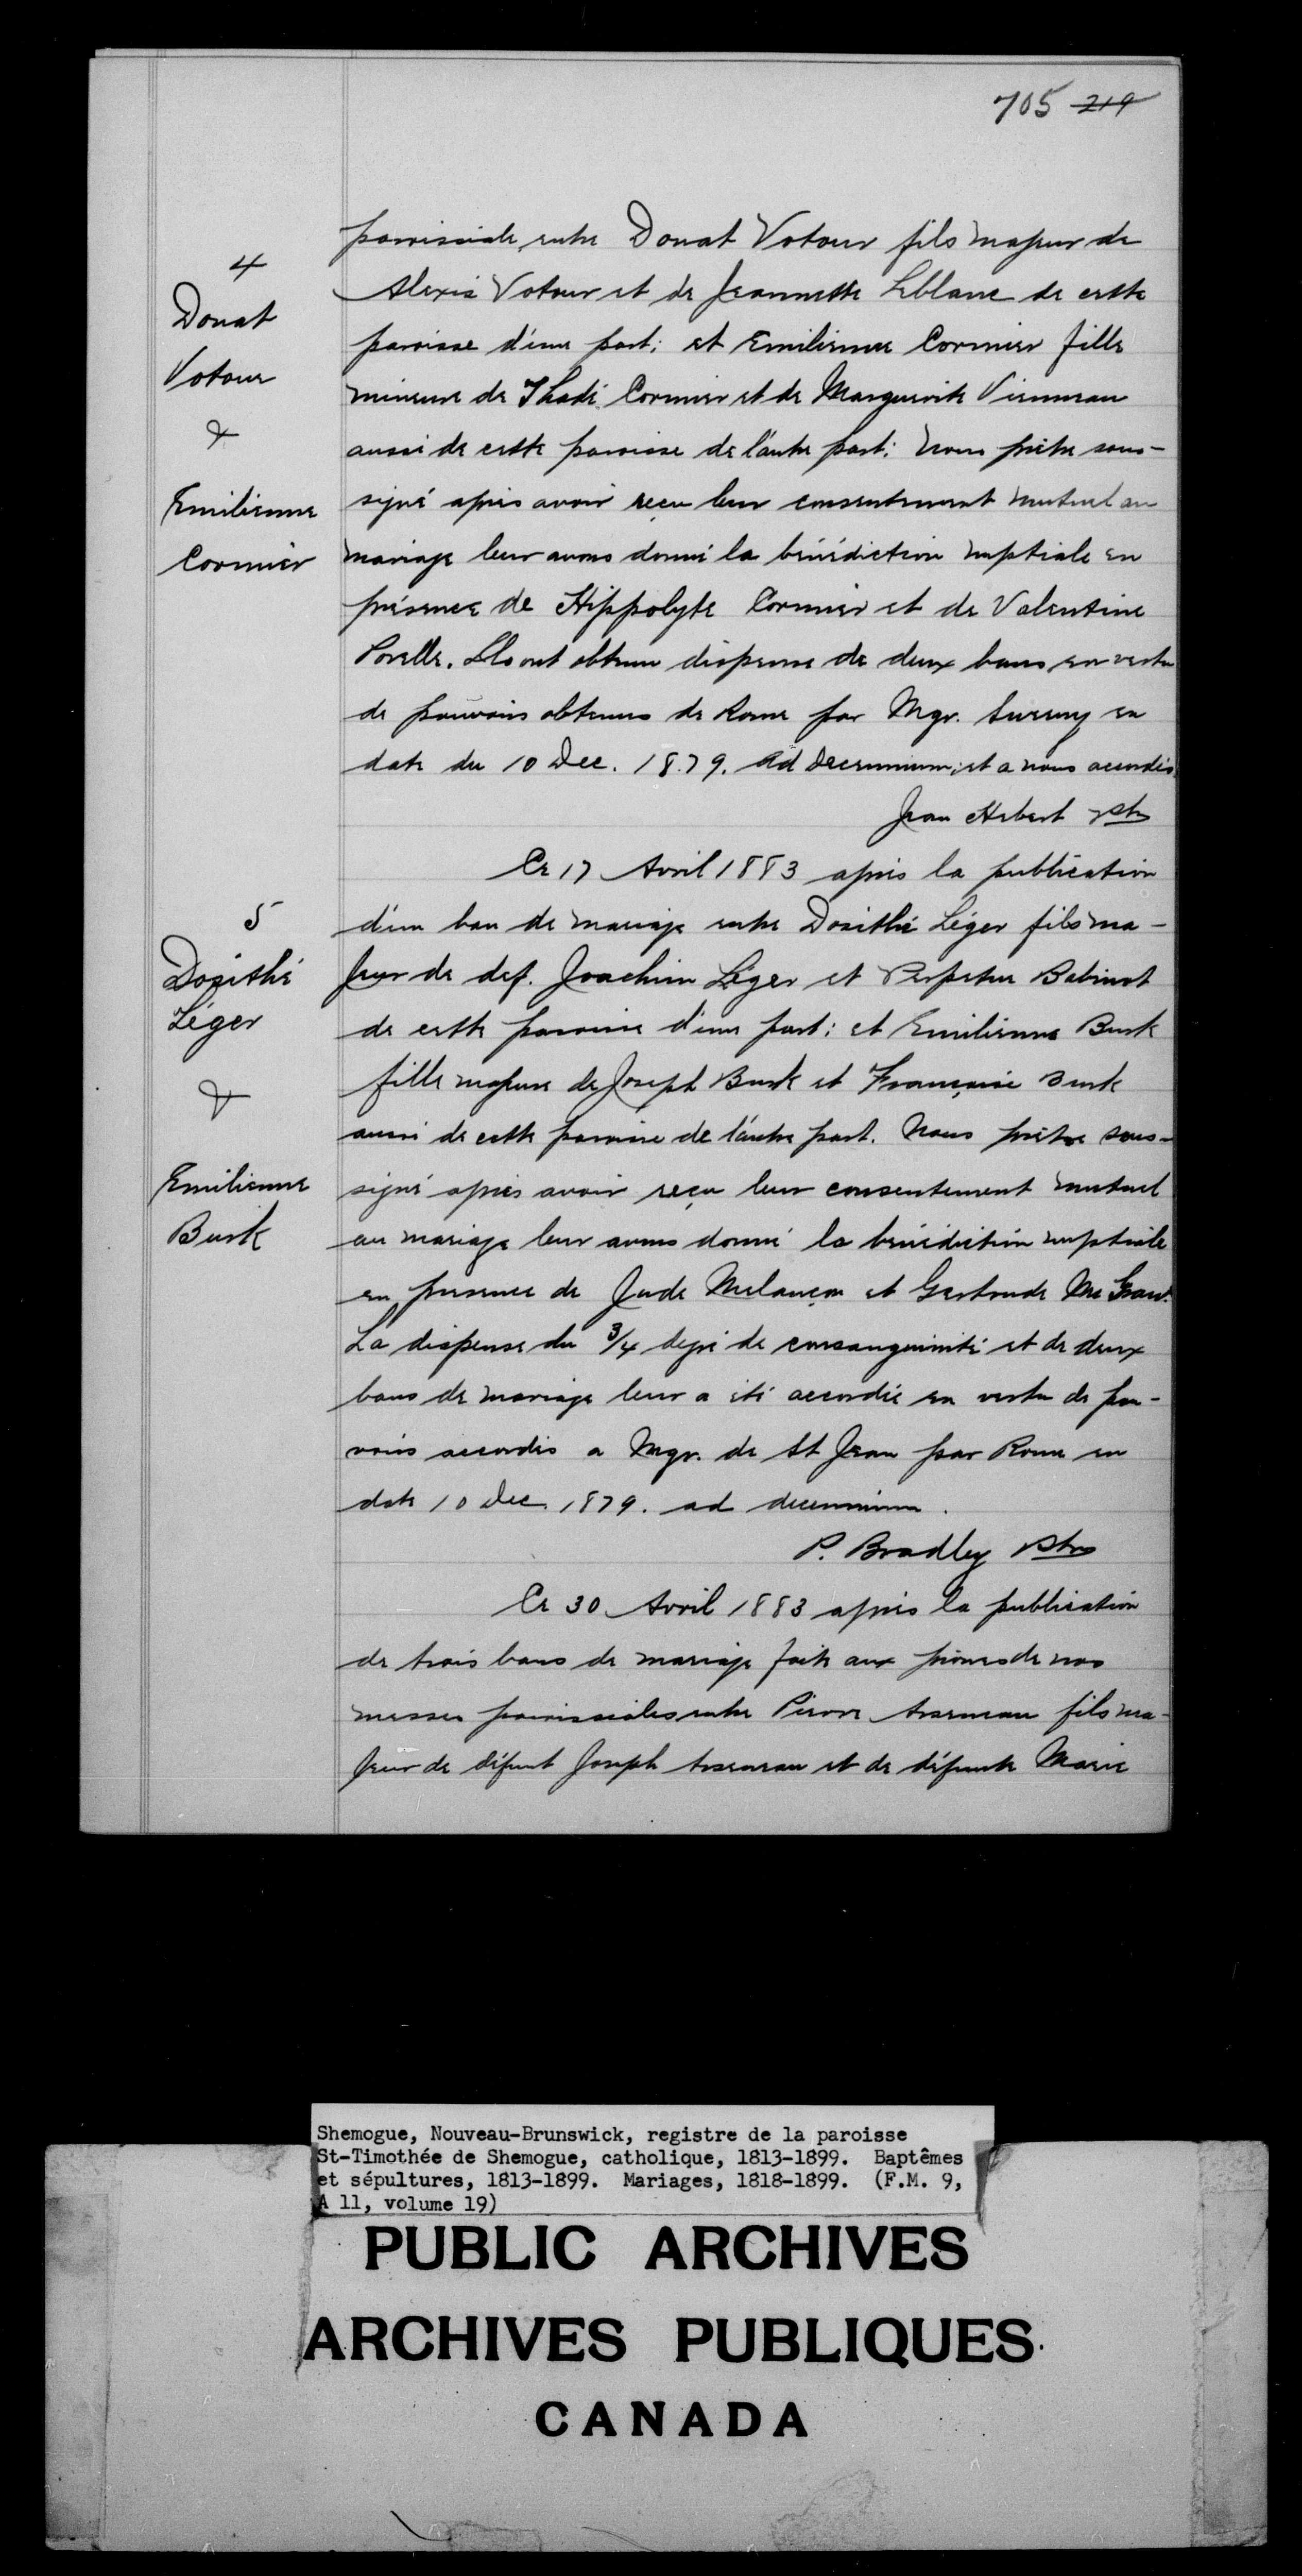 705 219
paroissiale entre Donat Votour fils majeur de
4
Donat
Votour
&
Emilienne
Cormier
Alexis Votour et de Jeannette Leblanc de cette
paroisse d'une part; et Emilienne Cormier fille
mineure de Thadé Cormier et de Marguerite Vienneau
aussi de cette paroisse de l'autre part; Nous prêtre sous-
signé après avoir reçu leur consentement mutuel au
mariage leur avons donné la bénédiction nuptiale en
présence de Hippolyte Cormier et de Valentine
Porelle. Ils ont obtenu dispense de deux bans en vertu
de pouvoirs obtenus de Rome par Mgr. Sweeny en
date du 10 Dec. 1879. Ad decennium; et a nous accordés
Jean Hebert Ptre
Ce 17 Avril 1883 après la publication
5
Dosithé
Léger
&
Emilienne
Burk
d'un ban de mariage entre Dosithé Léger fils ma-
jeur de def. Joachim Léger et Perpetue Babinot
de cette paroisse d'une part; et Emilienne Burk
fille majeure de Joseph Burk et Françoise Burk
aussi de cette paroisse de l'autre part. Nous prêtre sous-
signé après avoir reçu leur consentement mutuel
au mariage leur avons donné la bénédiction nuptiale
en presence de Jude Melançon et Gertrude McGraw.
La dispense du 3/4 degré de consanguinité et de deux
bans de mariage leur a été accordée en vertu de pou-
voirs accordés a Mgr. de St Jean par Rome en
date 10 Dec. 1879. ad decennium.
P. Bradley Ptre
Ce 30 Avril 1883 après la publication
de trois bans de mariage faite aux prones de nos
messes paroissiales entre Pierre Arseneau fils ma-
jeur de défunt Joseph Arseneau et de défunte Marie
Shemogue, Nouveau-Brunswick, registre de la paroisse
St-Timothée de Shemogue, catholique, 1813-1899. Baptêmes
et sépultures, 1813-1899. Mariages, 1818-1899. (F.M. 9,
A 11, volume 19)
PUBLIC ARCHIVES
ARCHIVES PUBLIQUES
CANADA